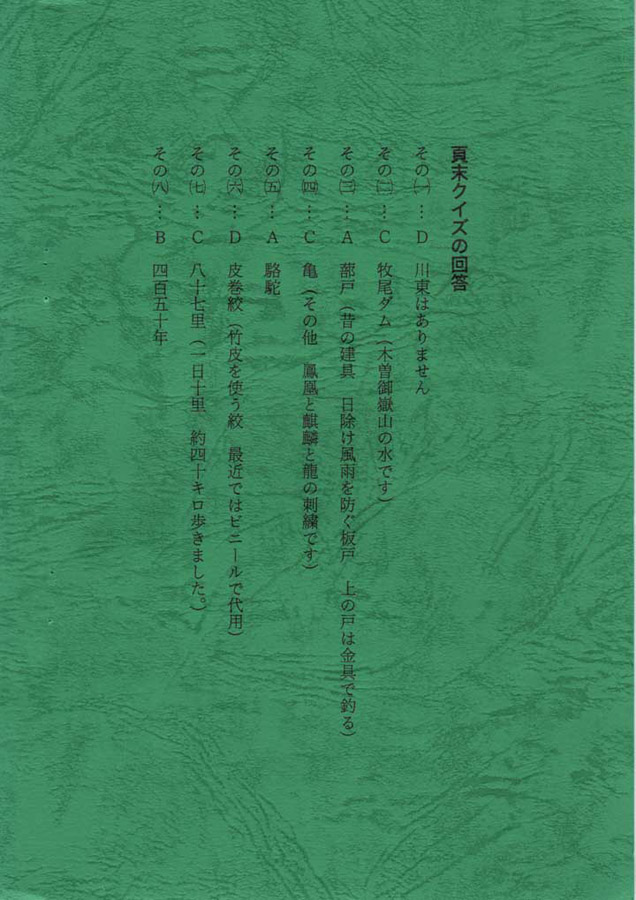 頁末クイズの回答
その㈠…D 川東はありません
その㈡…C 牧尾ダム(木曽御嶽山の水です)
その㈢…A 蔀戸(昔の建具 日除け風雨を防ぐ板戸 上の戸は金具で釣る)
その㈣…C 亀(その他 鳳凰と麒麟と龍の刺繍です)
その㈤…A 駱駝
その㈥…D 皮巻絞(竹皮を使う絞 最近ではビニールで代用)
その㈦…C 八十七里(一日十里 約四十キロ歩きました。)
その㈧…B 四百五十年